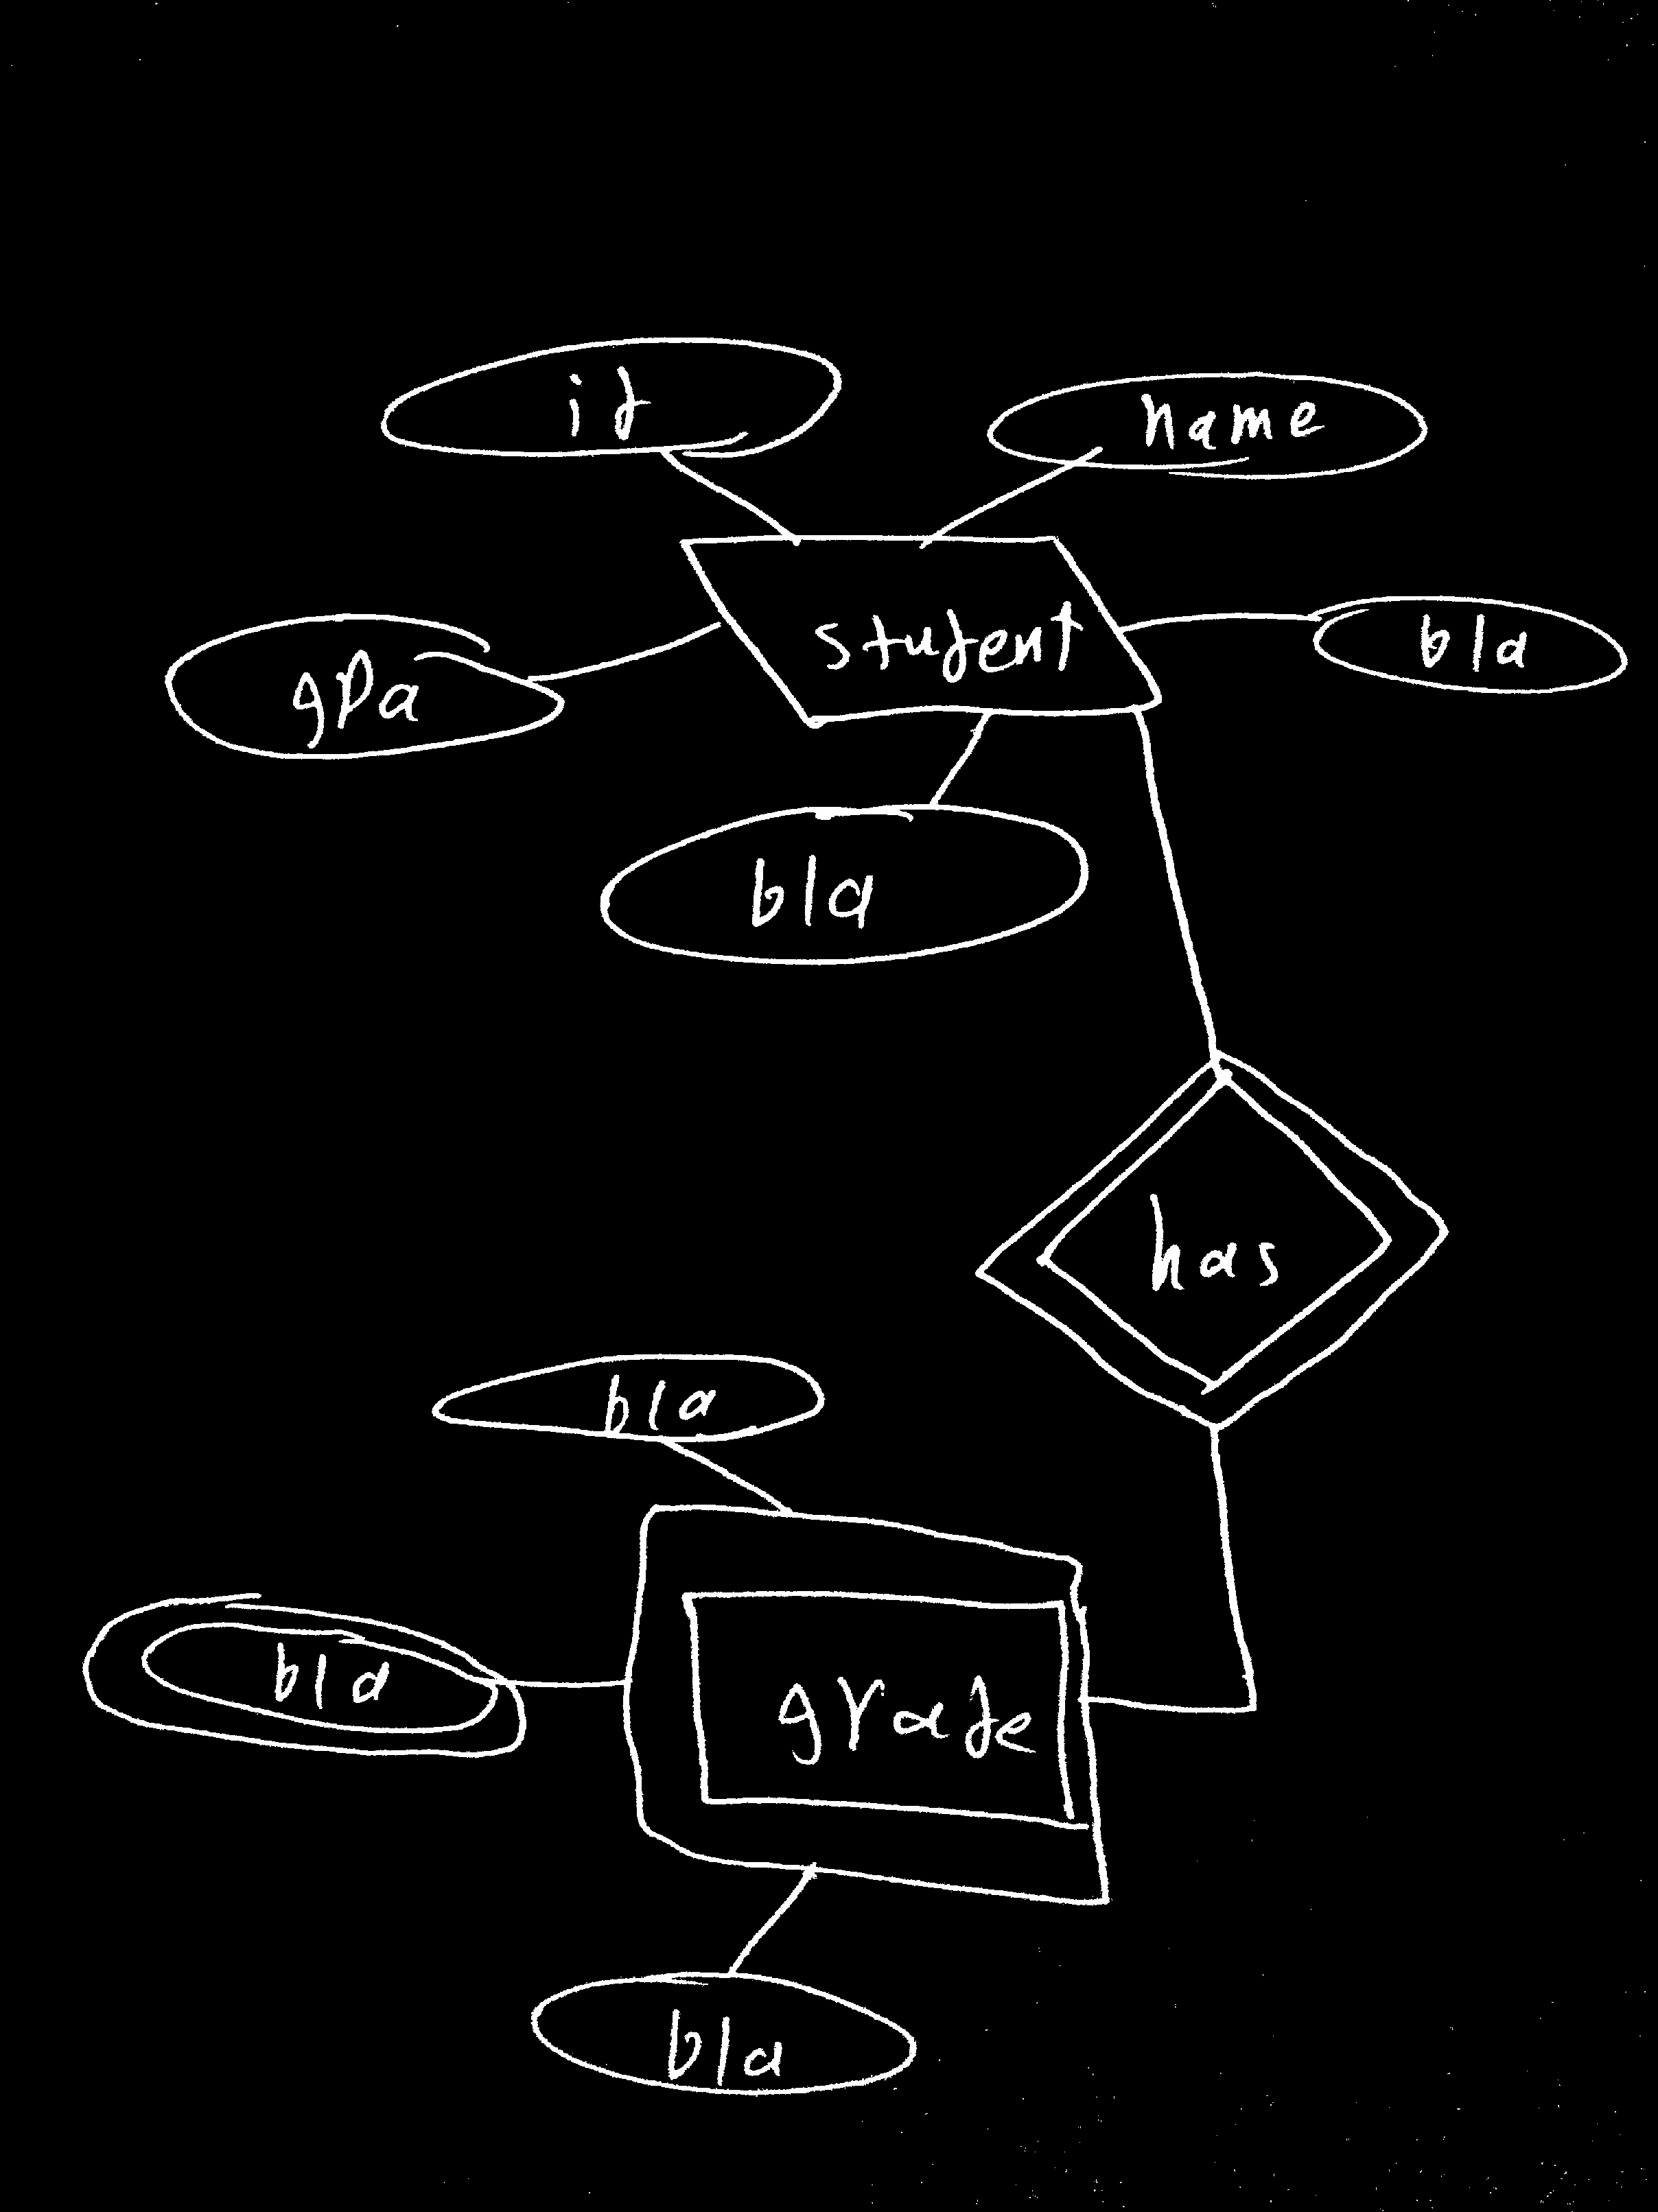 id
name
student
bla
gpa
bla
has
bla
bla
grade
bla